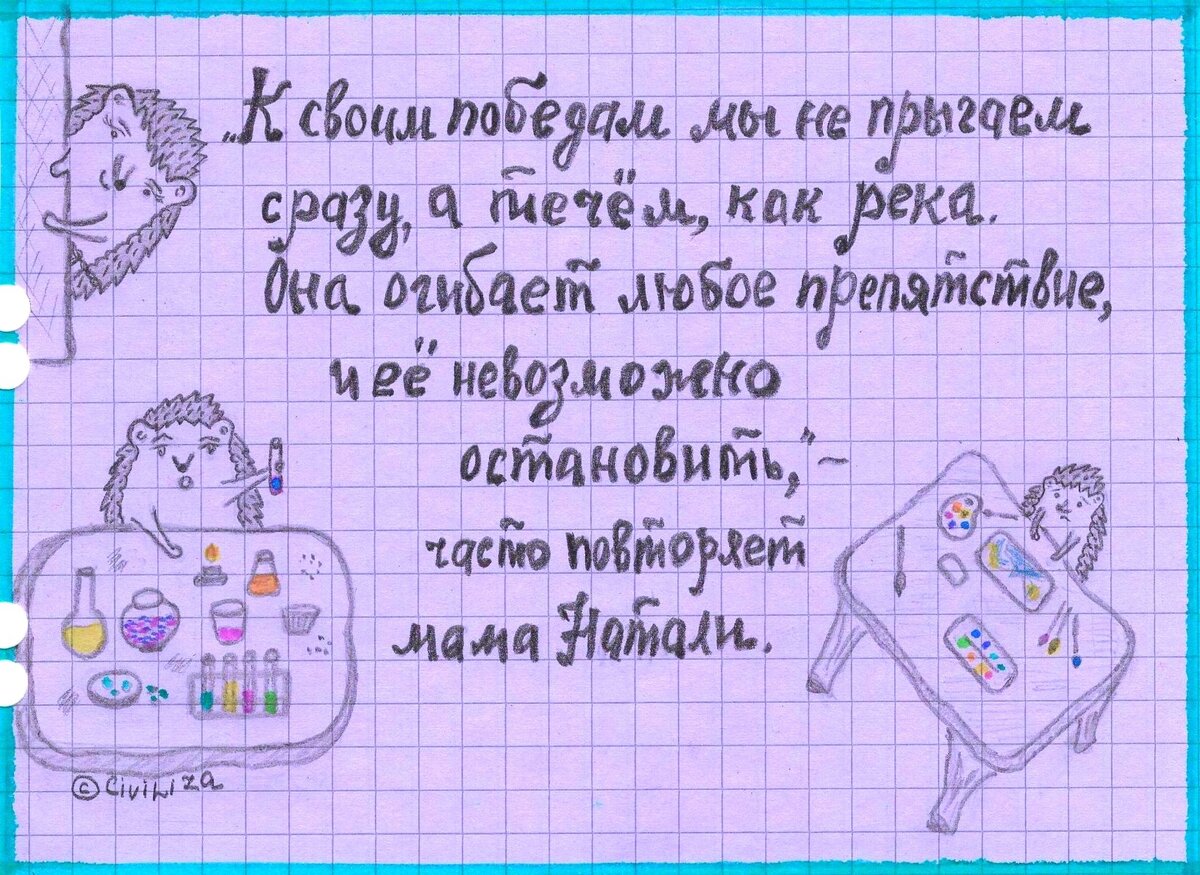 „К своим победам мы не прыгаем
сразу, а течём, как река.
Она огибает любое препятствие,
и её невозможно
остановить,“ –
часто повторяет
мама Натали.
© Civiliza